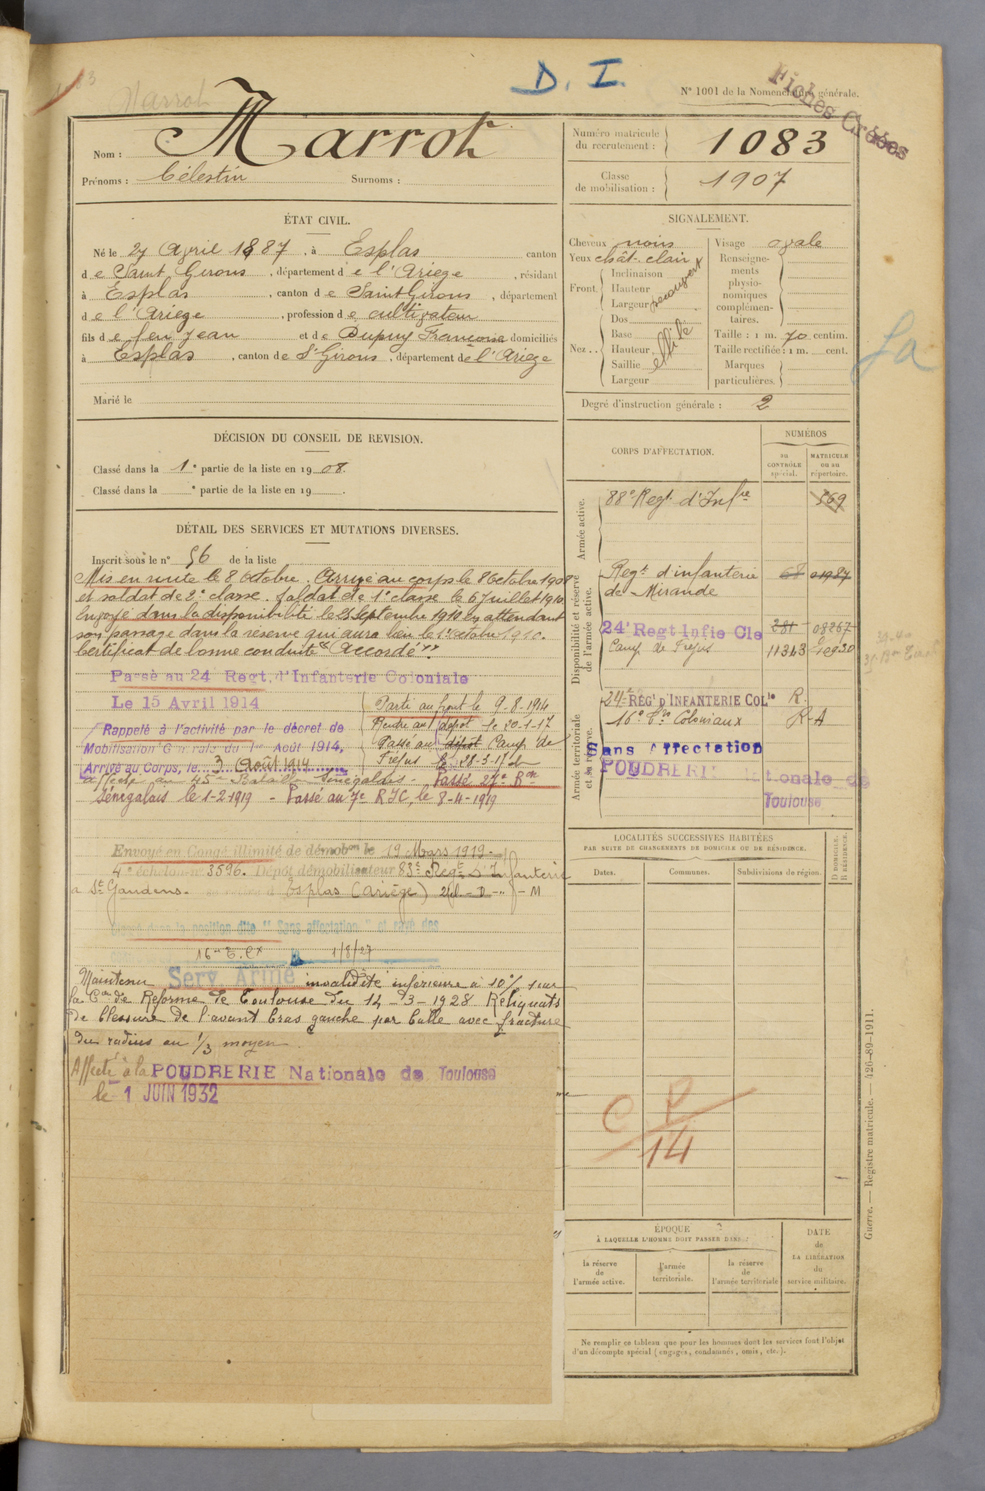 D. I.
N° 1001 de la Nomenclature générale.
Fiches Créées
Marrot
Nom : Marrot
Prénoms : Célestin Surnoms :
Numéro matricule du recrutement : 1083
Classe de mobilisation : 1907
ÉTAT CIVIL.
Né le 27 Avril 1887, à Esplas canton
de Saint Girons, département de l'Ariège, résidant
à Esplas, canton de Saint Girons, département
de l'Ariège, profession de cultivateur
fils de feu Jean et de Dupuy Françoise domiciliés
à Esplas, canton de St Girons, département de l'Ariège
Marié le
SIGNALEMENT.
Cheveux noirs
Yeux chât. clair
Front.
Inclinaison
Hauteur
Largeur
Nez..
Dos
Base
Hauteur
Saillie
Largeur
Visage ovale
Renseignements physionomiques complémentaires.
Taille : 1 m. 70 centim.
Taille rectifiée : 1 m. cent.
Marques particulières.
Degré d'instruction générale : 2
DÉCISION DU CONSEIL DE REVISION.
Classé dans la 1e partie de la liste en 1908.
Classé dans la e partie de la liste en 19 .
DÉTAIL DES SERVICES ET MUTATIONS DIVERSES.
Inscrit sous le n° 56 de la liste
Mis en route le 8 octobre. Arrivé au corps le 8 octobre 1908
et soldat de 2e classe. Soldat de 1e classe le 6 Juillet 1910.
Envoyé dans la disponibilité le 25 Septembre 1910 en attendant
son passage dans la réserve qui aura lieu le 1er octobre 1910.
Certificat de bonne conduite "Accordé".
Passé au 24 Regt. d'Infanterie Coloniale
Le 15 Avril 1914
Rappelé à l'activité par le décret de
Mobilisation Générale du 1er Août 1914,
Arrivé au Corps, le 3 Août 1914
Parti au front le 9-8-1914
Rentre au dépot le 20-1-17
Passé au dépot Camp de
Fréjus le 28-3-17
affecté au 45e Bataillon Sénégalais - Passé 27e Bon
Sénégalais le 1-2-1919 - Passé au 7e RIC, le 8-4-1919
Envoyé en Congé illimité de démobon le 19 Mars 1919
4e échelon n° 3596. Dépôt démobilisateur 83e Regt d'Infanterie
à St Gaudens. Esplas (Ariège)
Classé dans la position dite "Sans affectation" et rayé des
16e 1/8/27
Maintenu Serv. Armé invalidité inférieure à 10% par
la Con de Réforme de Toulouse du 14-3-1928 Reliquats
de blessure de l'avant bras gauche par balle avec fracture
du radius au 1/3 moyen.
Affecté à la POUDRERIE Nationale de Toulouse
le 1 JUIN 1932
CORPS D'AFFECTATION.
NUMÉROS
AU CONTRÔLE spécial.
MATRICULE ou au répertoire.
Armée active.
88e Regt. d'Infie 569
Disponibilité et réserve de l'armée active.
Regt d'infanterie
de Mirande
24e Regt Infie Cle 281 08267
Camp de Fréjus 11343
Armée territoriale et sa réserve.
24e REGt D'INFANTERIE COLle R
16e Coloniaux RA
Sans Affectation
POUDRERIE Nationale de
Toulouse
LOCALITÉS SUCCESSIVES HABITÉES
PAR SUITE DE CHANGEMENTS DE DOMICILE OU DE RÉSIDENCE.
Dates. Communes. Subdivisions de région.
D DOMICILE. R RÉSIDENCE.
C P
14
ÉPOQUE
À LAQUELLE L'HOMME DOIT PASSER DANS :
la réserve de l'armée active.
l'armée territoriale.
la réserve de l'armée territoriale
DATE de LA LIBÉRATION du service militaire.
Ne remplir ce tableau que pour les hommes dont les services font l'objet
d'un décompte spécial (engagés, condamnés, omis, etc.).
Guerre. — Registre matricule. — 426-89-1911.